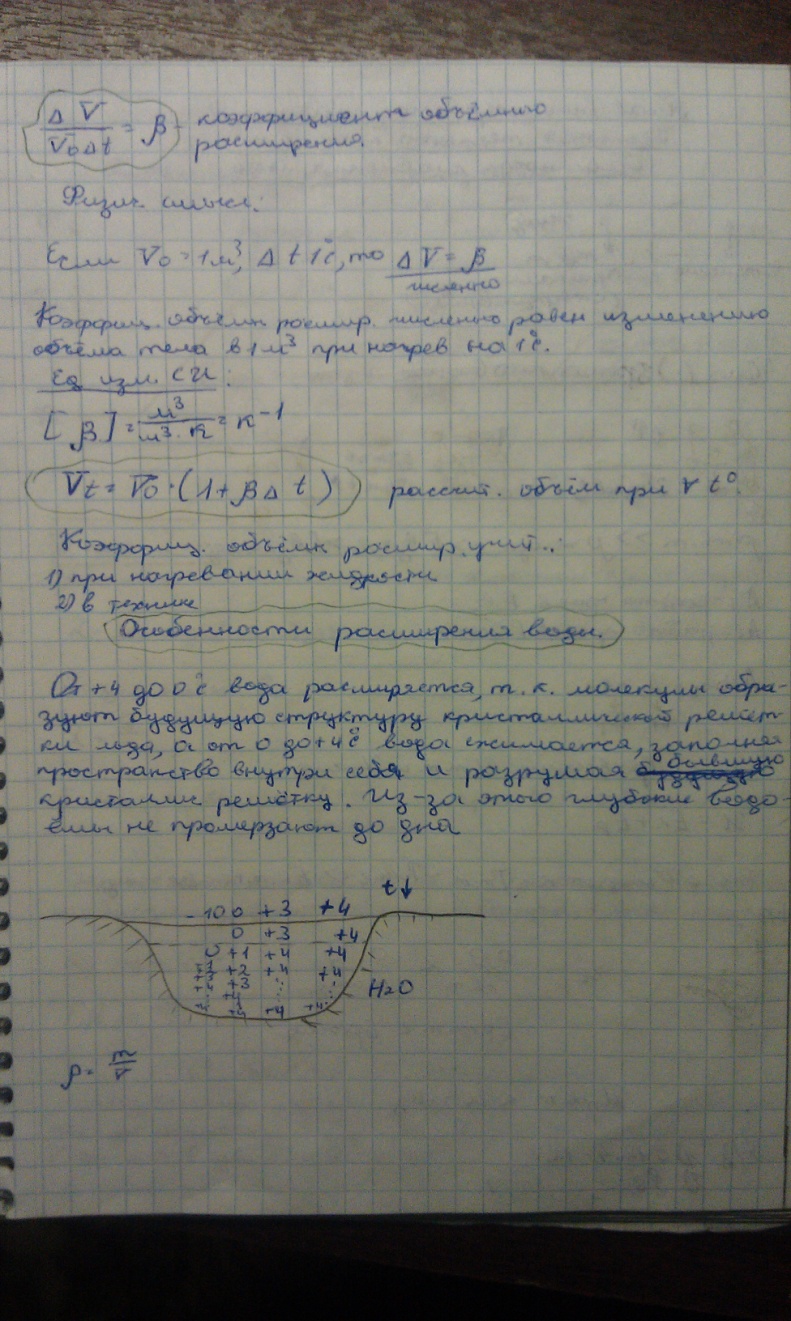 ΔV/V₀Δt = β - коэффициент объёмного
расширения.
Физич. смысл:
Если V₀ = 1м³, Δt 1°C, то ΔV = β
численно
Коэффиц. объёмн расшир. численно равен изменению
объёма тела в 1 м³ при нагрев на 1°C.
Ед изм. СИ:
[β] = м³/м³·К = К⁻¹
Vt = V₀·(1+βΔt) рассчит. объём при ∀ t°.
Коэффиц. объёмн расшир. учит.:
1) при нагревании жидкости
2) в технике
Особенности расширения воды.
От +4 до 0°C вода расширяется, т. к. молекулы обра-
зуют будущую структуру кристаллической решёт-
ки льда, а от 0 до +4°C вода сжимается, заполняя
пространство внутри себя и разрушая бывшую
кристаллич решётку. Из-за этого глубокие водо-
ёмы не промерзают до дна
t↓
-10 0 +3 +4
0 +3 +4
0 +1 +4 +4
+2 +4 +4
+3
+4 +4
H₂O
ρ = m/V